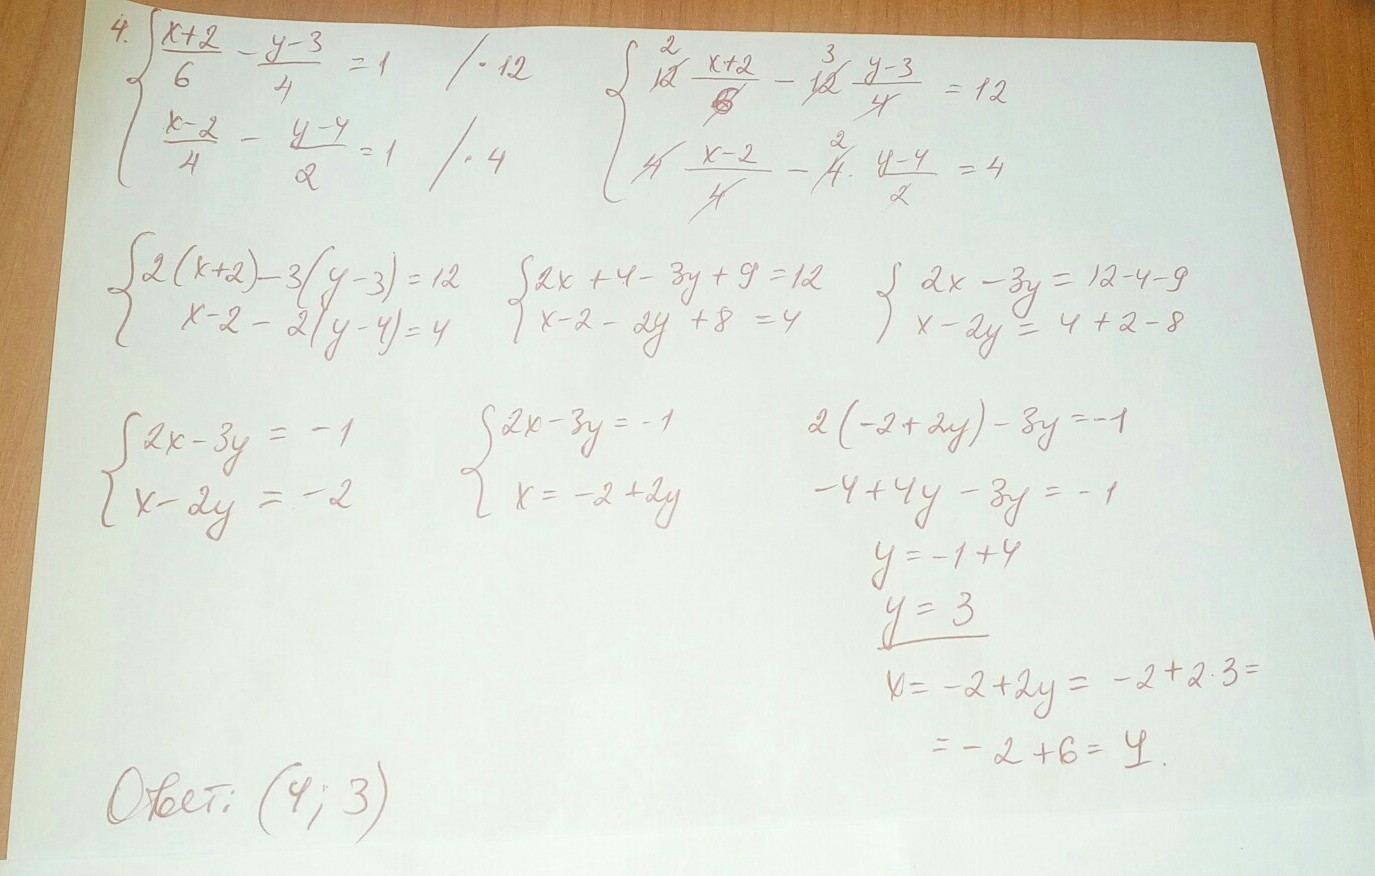 4. { (x+2)/6 - (y-3)/4 = 1 /·12
(x-2)/4 - (y-4)/2 = 1 /·4
{ 12 2 (x+2)/6 - 12 3 (y-3)/4 = 12
4 (x-2)/4 - 4 2 · (y-4)/2 = 4
{ 2(x+2)-3(y-3)=12
x-2-2(y-4)=4
{ 2x+4-3y+9=12
x-2-2y+8=4
{ 2x-3y=12-4-9
x-2y=4+2-8
{ 2x-3y=-1
x-2y=-2
{ 2x-3y=-1
x=-2+2y
2(-2+2y)-3y=-1
-4+4y-3y=-1
y=-1+4
y=3
x=-2+2y=-2+2·3=
=-2+6=4.
Ответ: (4; 3)